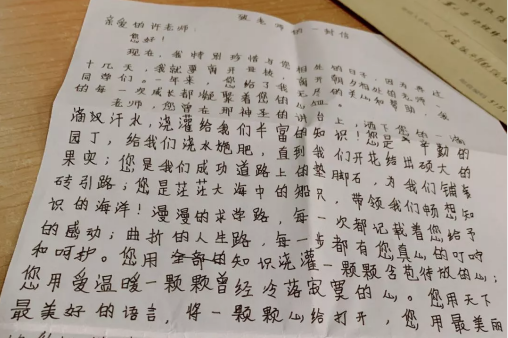 致老师的一封信
亲爱的许老师：
您好！
现在，我特别珍惜与您相处的日子，因为再过
十几天，我就要离开母校，离开朝夕相处的老师、
同学们。一年来，您给了我无尽的关心和帮助，我
的每一次成长都凝聚着您的心血。
老师，您曾在那神圣的讲台上，洒下您的一滴
滴汗水，浇灌给我们丰富的知识！您是辛勤的
园丁，给我们浇水施肥，直到我们开花结出硕大的
果实；您是我们成功道路上的垫脚石，为我们铺
砖引路；您是茫茫大海中的船只，带领我们畅想知
识的海洋！漫漫的求学路，每一次都记载着您给予
的感动；曲折的人生路，每一步都有您真心的叮咛
和呵护。您用全部的知识浇灌一颗颗含苞待放的心；
您用爱温暖一颗颗曾经冷落寂寞的心。您用天下
最美好的语言，将一颗颗心给打开，您用最美丽